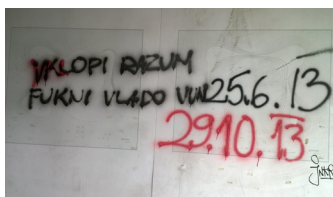 VKLOPI RAZUM
FUKNI VLADO VUN 25.6.13
29.10.13